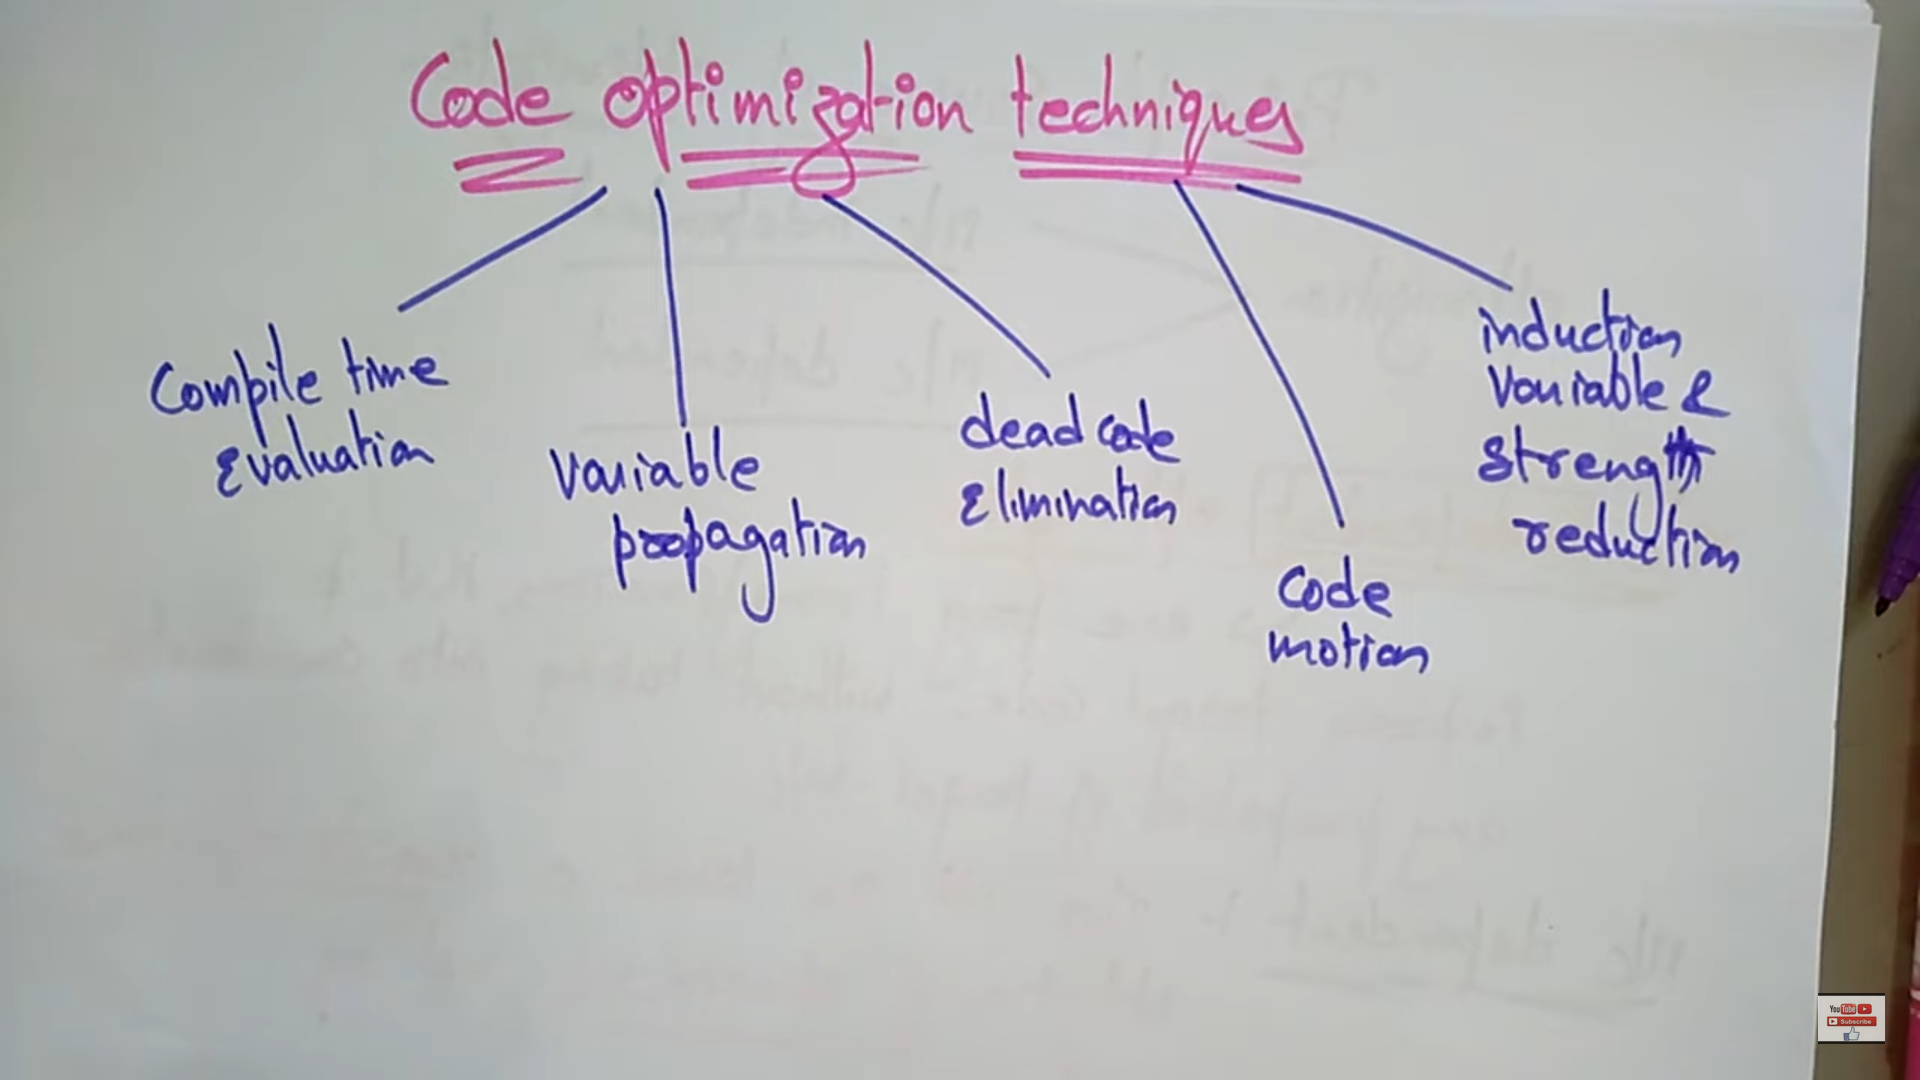 Code optimization techniques
Compile time
Evaluation
Variable
propagation
dead code
Elimination
Code
motion
induction
Variable &
strength
reduction
YouTube
Subscribe